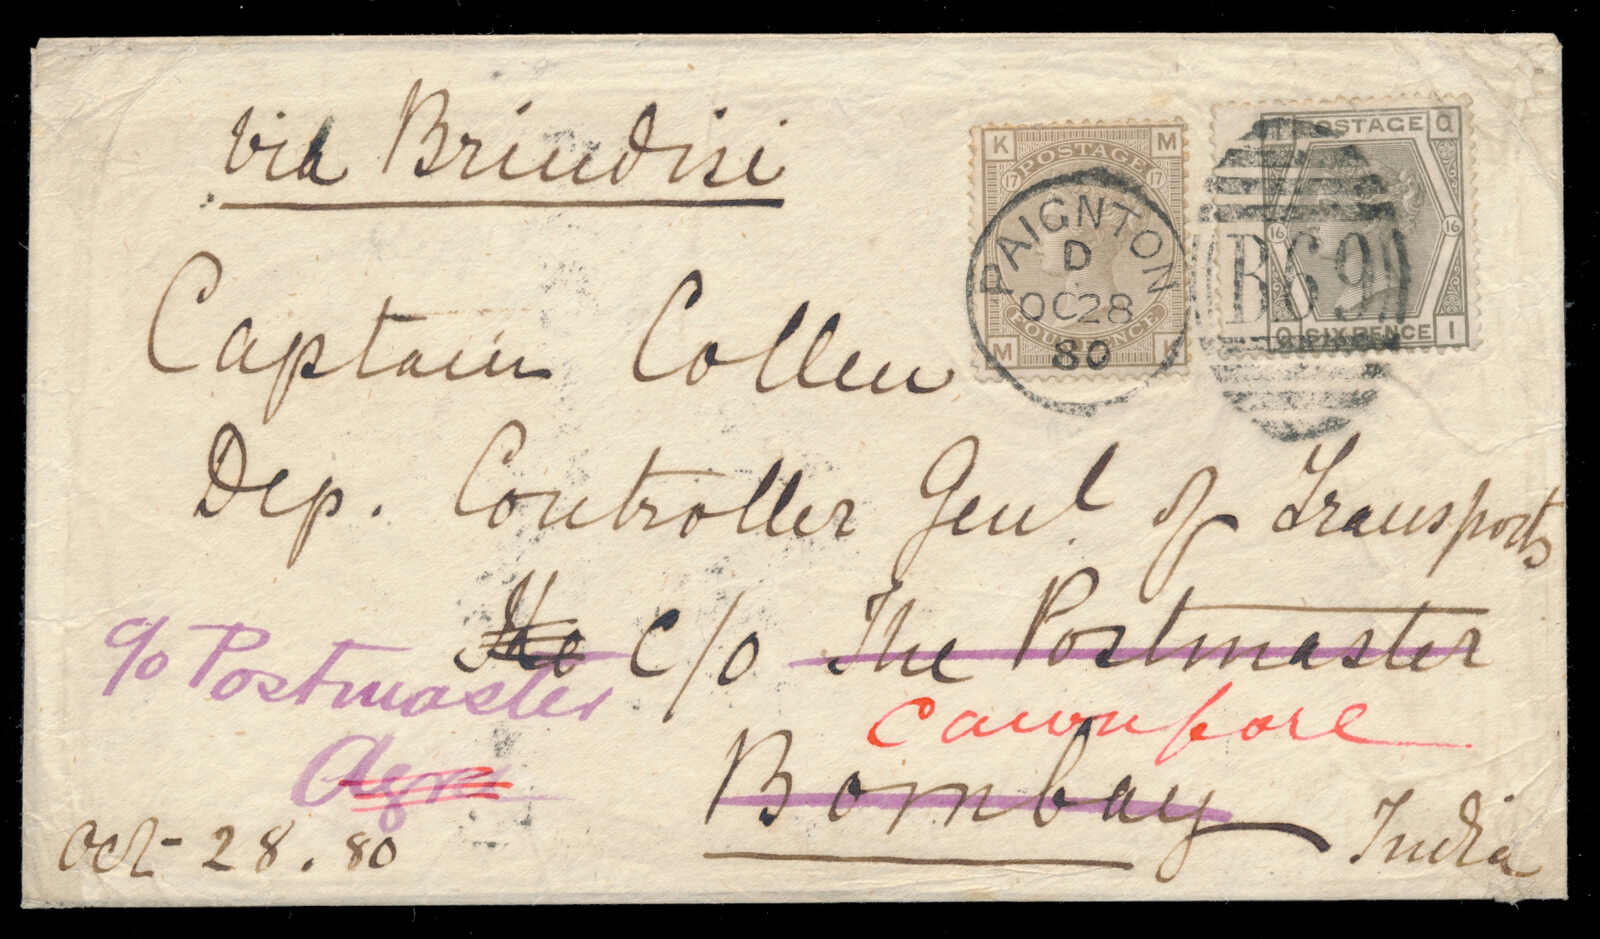 via Brindisi
Captain Collen
Dep. Controller Genl of Transports
The c/o The Postmaster
c/o Postmaster
Cawnpore
Agra
Bombay
India
Oct- 28. 80
K M
POSTAGE
17 17
FOUR PENCE
M K
PAIGNTON
D
OC28
80
POSTAGE Q
16 16
Q SIX PENCE I
B69